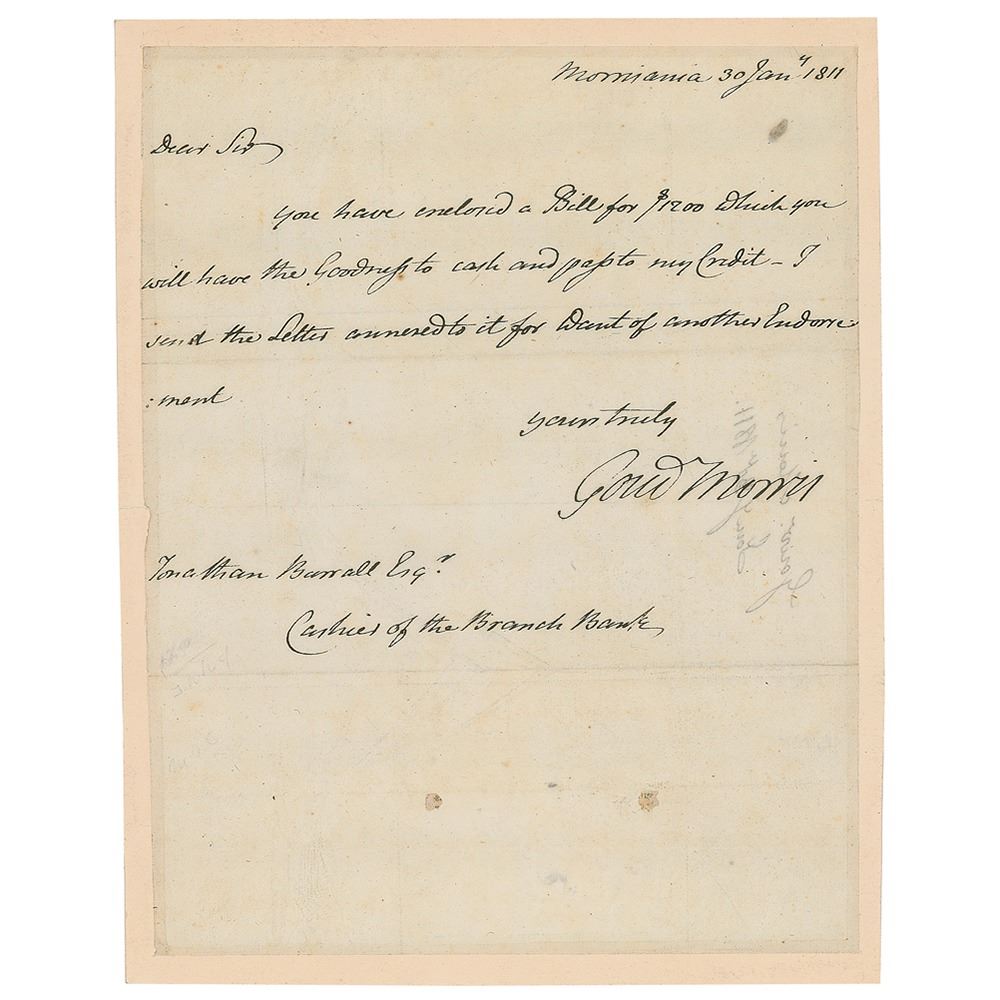 Morrisania 30 Janʸ 1811
Dear Sir
you have enclosed a Bill for $1200 which you
will have the Goodneſs to cash and paſs to my Credit – I
send the Letter annexed to it for Want of another Endorse
:ment
yours truly
Gouv Morris
Jonathan Burrall Esqʳ
Cashier of the Branch Bank